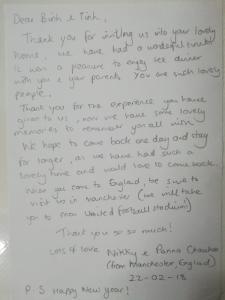 Dear Binh & Tinh,
Thank you for inviting us into your lovely
home, we have had a wonderful time.
It was a pleasure to enjoy dinner
with you & your parents. You are such lovely
people.
Thank you for the experience you have
given to us, now we have some lovely
memories to remember you all with.
We hope to come back one day and stay
for longer, as we have had such a
lovely time and would love to come back.
When you come to England, be sure to
visit us in Manchester (we will take
you to Man United football stadium)
Thank you so so much!
Lots of love
Nikky & Panna Chauhan
(from Manchester, England)
22-02-18
P.S Happy New year!